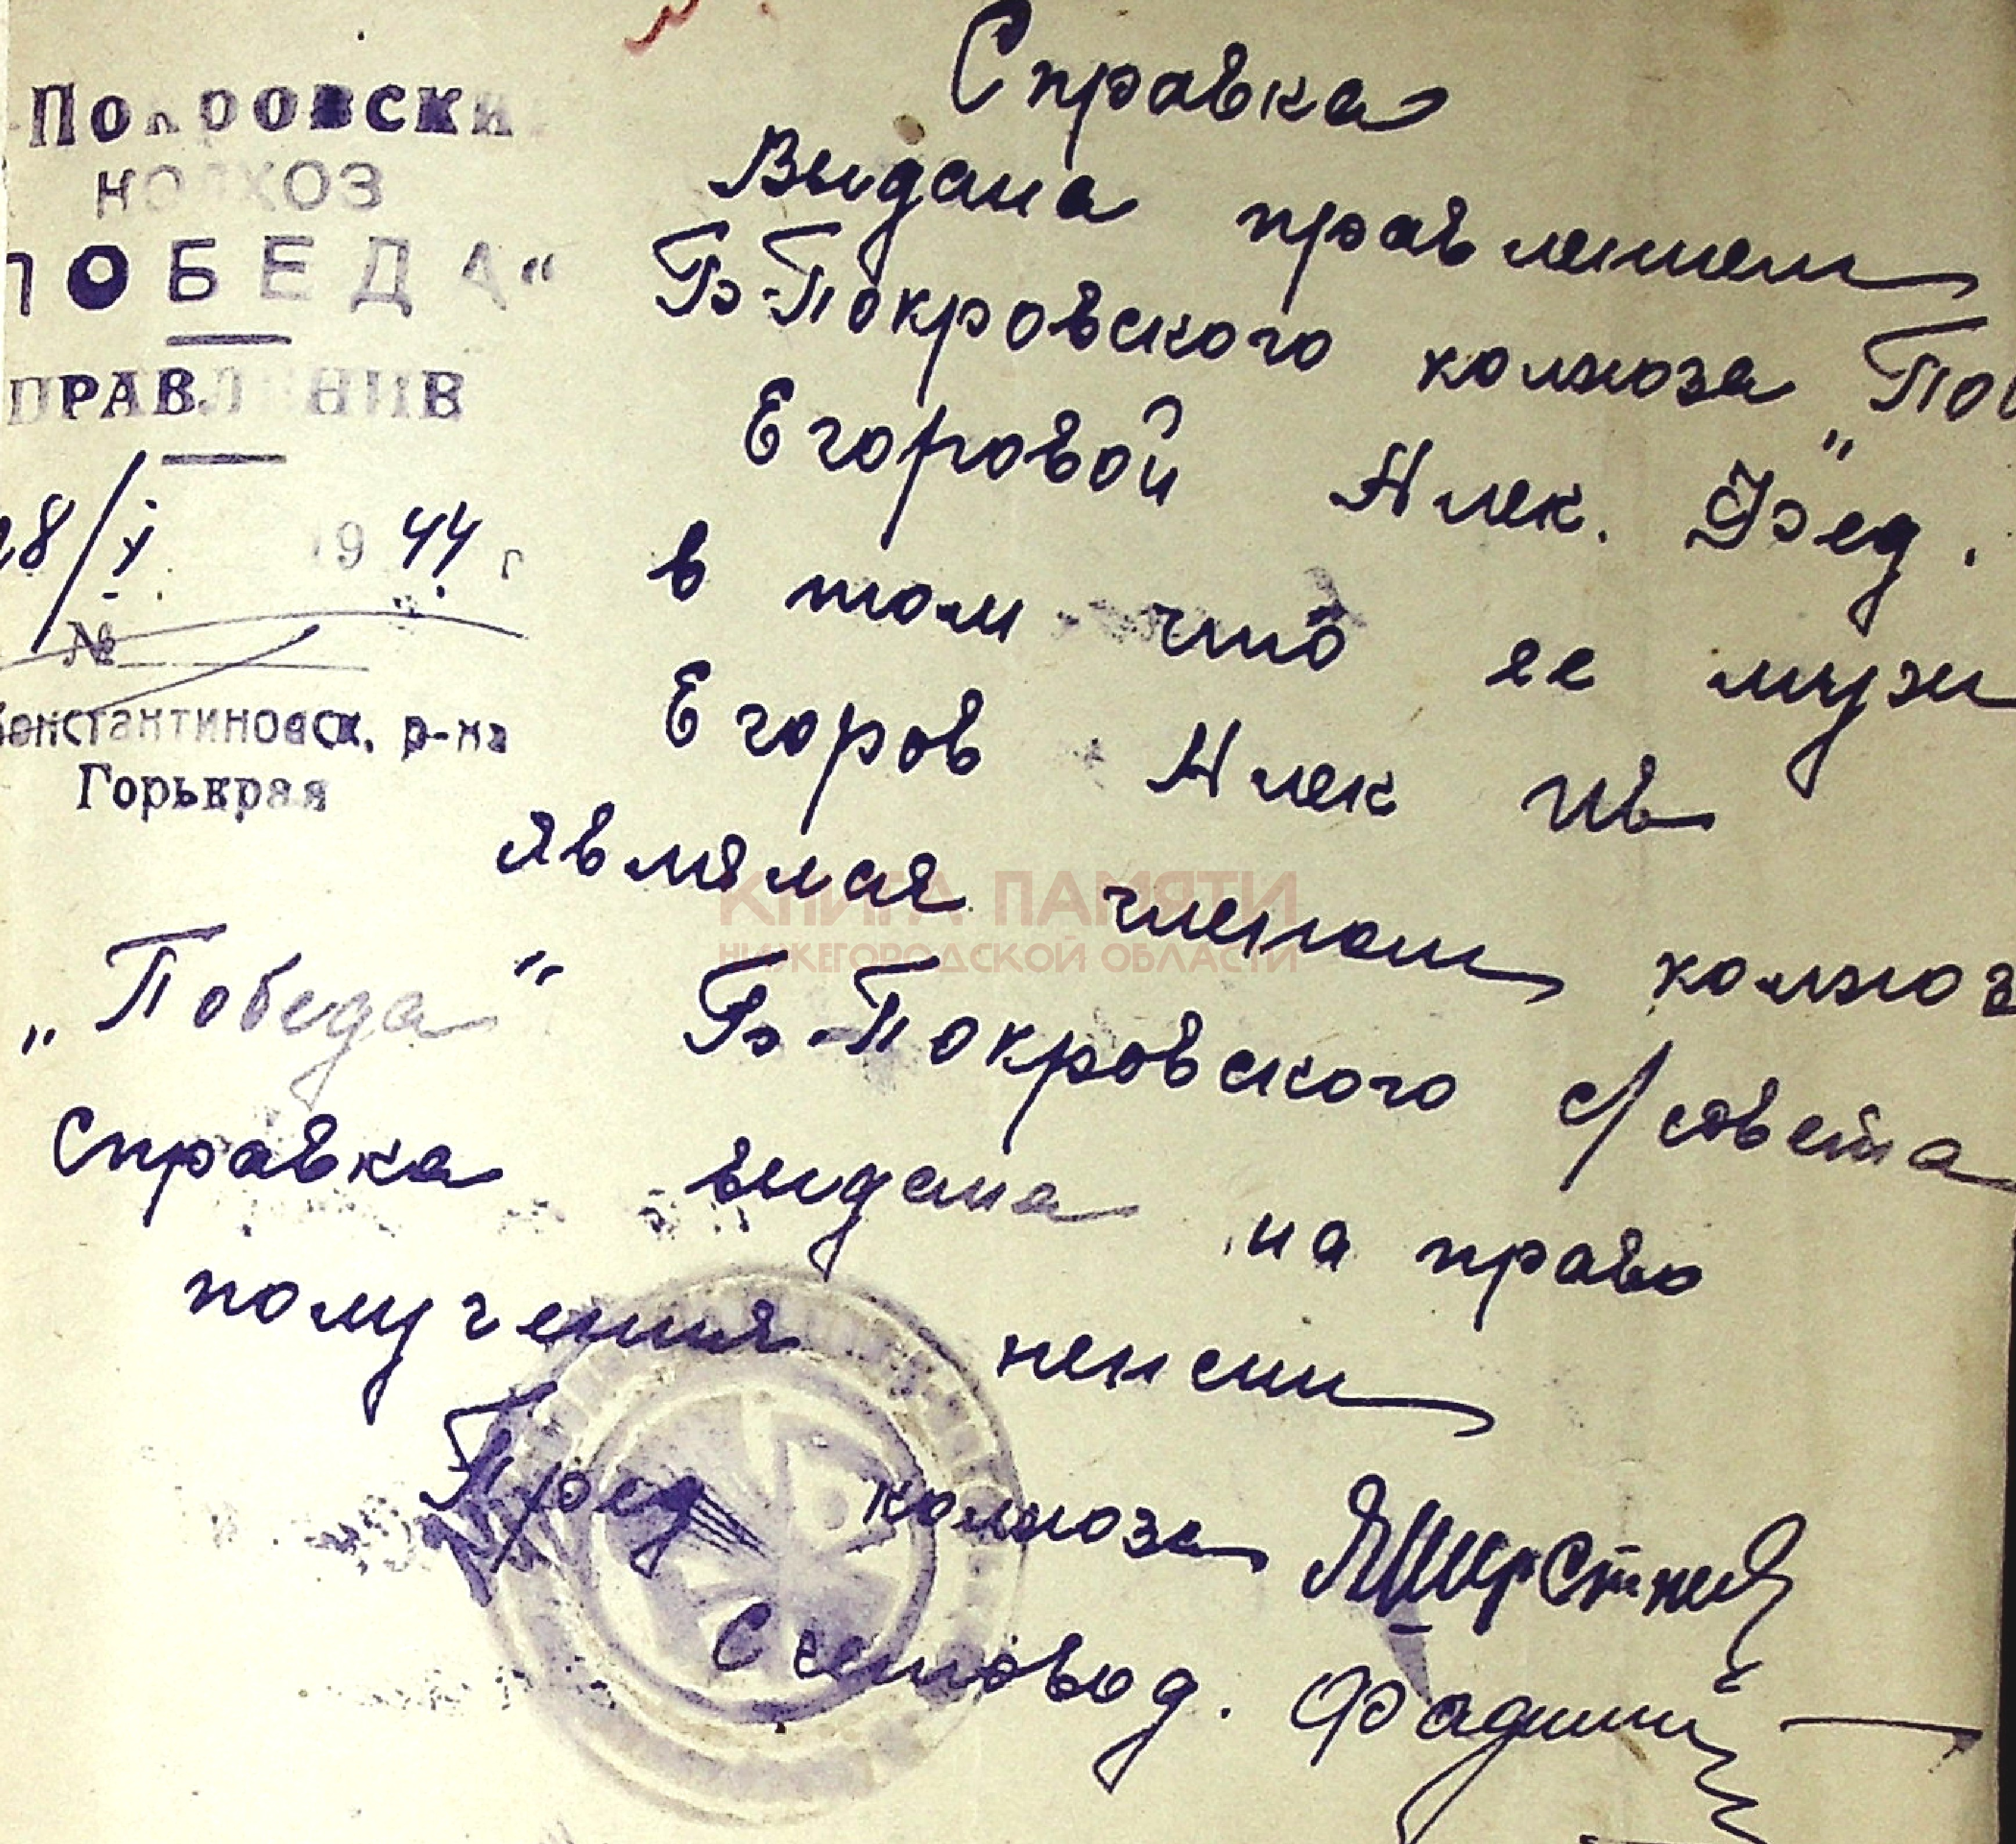 Покровски
КОЛХОЗ
ПОБЕДА“
ПРАВЛЕНИЕ
28/X 1944 г
№
Константиновск. р-на
Горькрая
Справка
Выдана правлением
Б-Покровского колхоза „Поб
Егоровой Алек. Фед.
в том что ее муж
Егоров Алек Ив
являлся членом колхоз
„Победа“ Б-Покровского с/совета
Справка выдана на право
получения пенсии
Пред колхоза
Счетовод.
КНИГА ПАМЯТИ
НИЖЕГОРОДСКОЙ ОБЛАСТИ